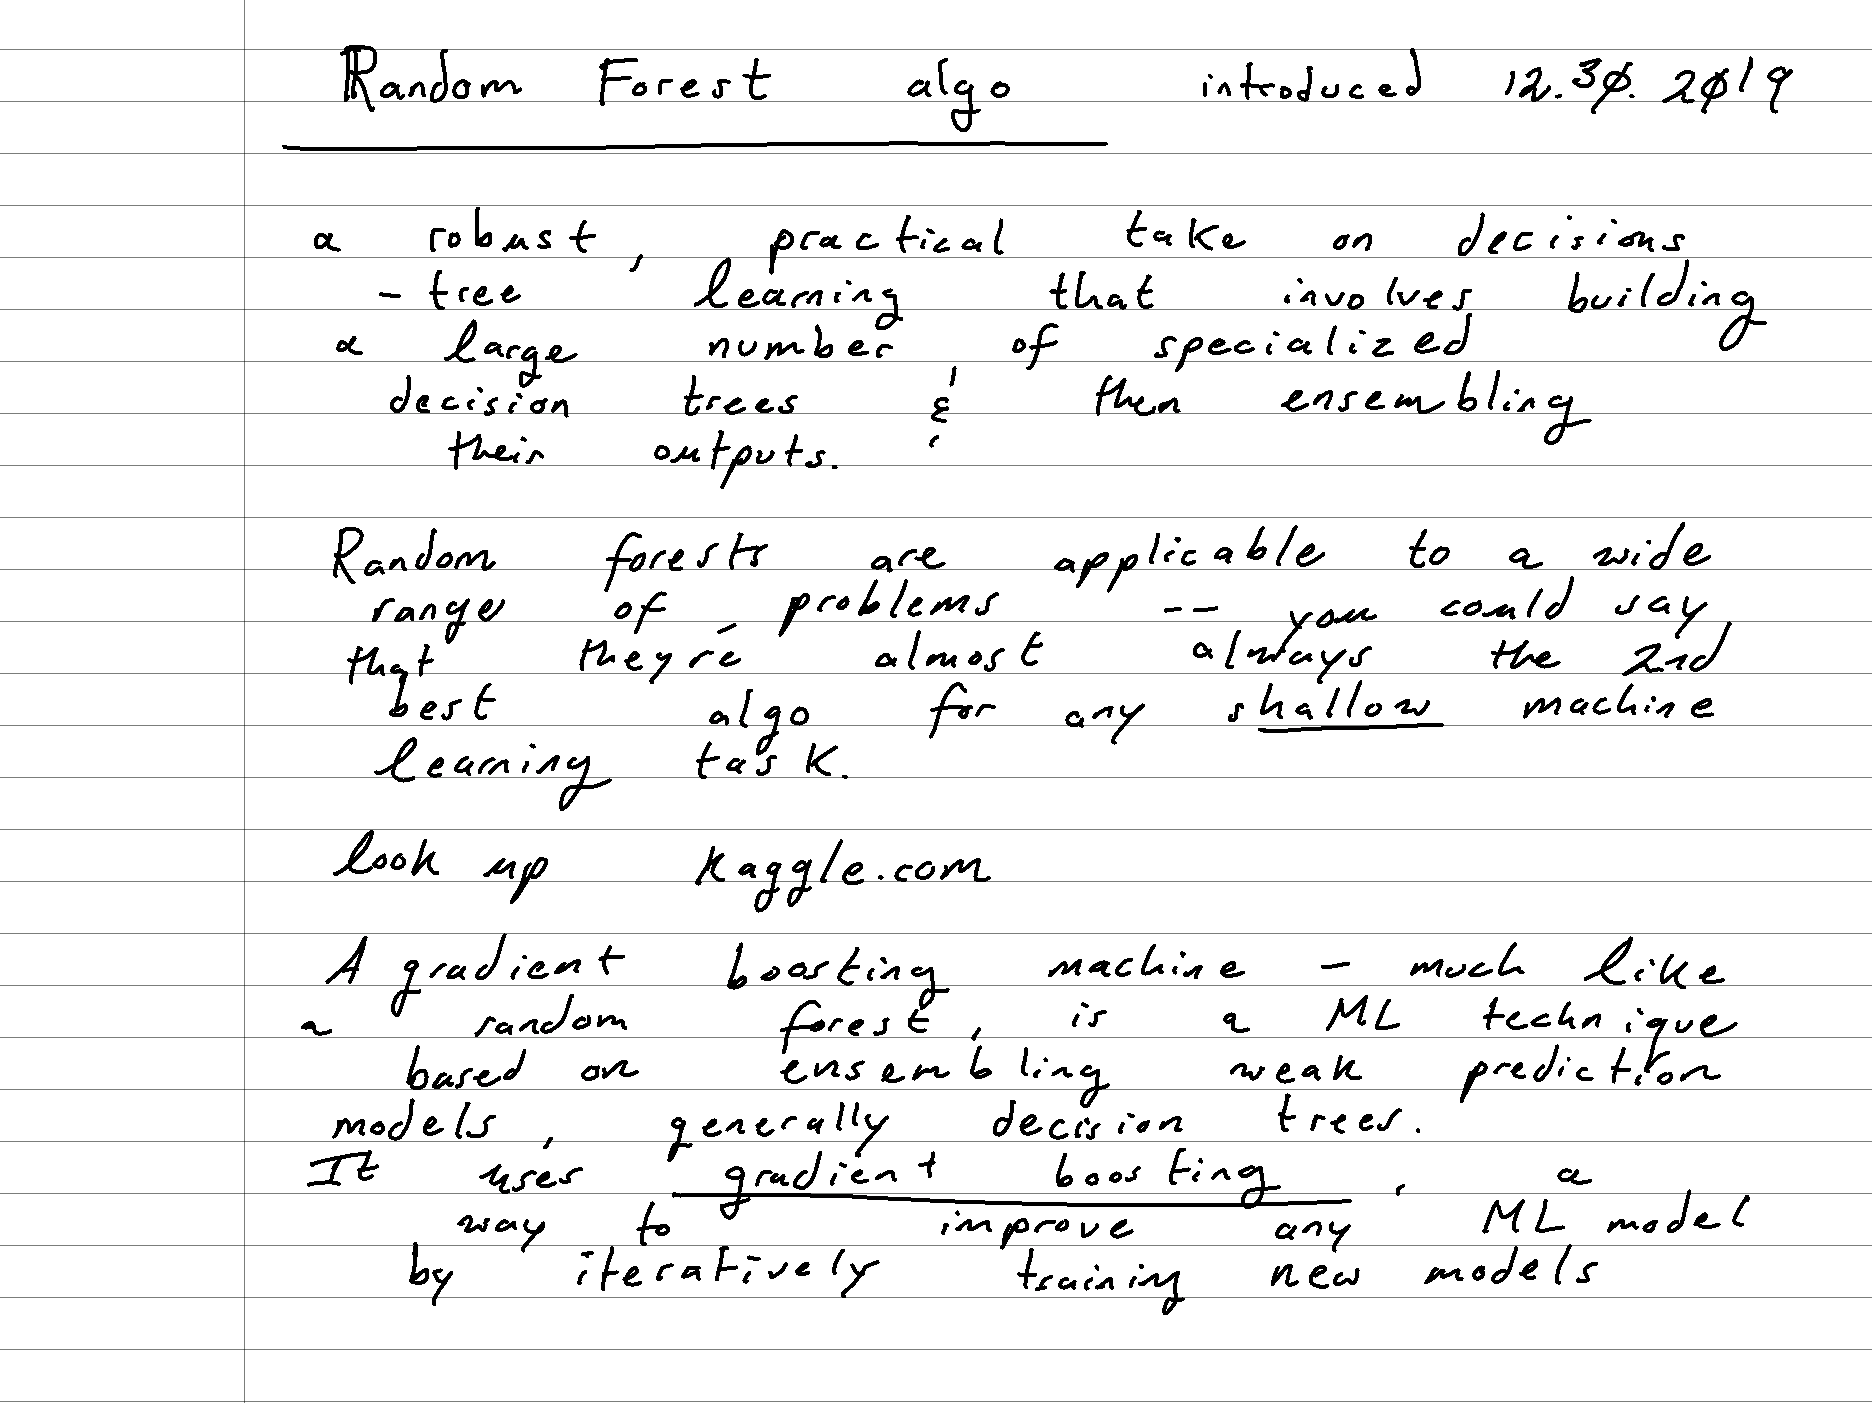 Random Forest algo introduced 12.30.2019
a robust, practical take on decisions
- tree learning that involves building
a large number of specialized
decision trees & then ensembling
their outputs.
Random forests are applicable to a wide
range of problems -- you could say
that they're almost always the 2nd
best algo for any shallow machine
learning task.
look up kaggle.com
A gradient boosting machine - much like
a random forest, is a ML technique
based on ensembling weak prediction
models, generally decision trees.
It uses gradient boosting, a
way to improve any ML model
by iteratively training new models